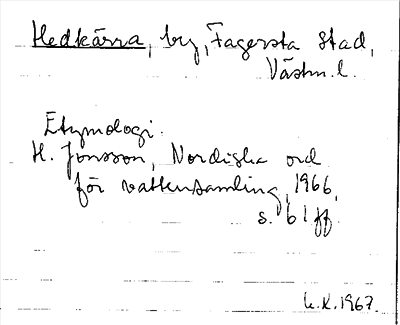 Hedkärra, by, Fagersta stad,
Västm. l.
Etymologi.
H. Jonsson, Nordiska ord
för vattensamling, 1966,
s. 61 ff.
U.K. 1967.